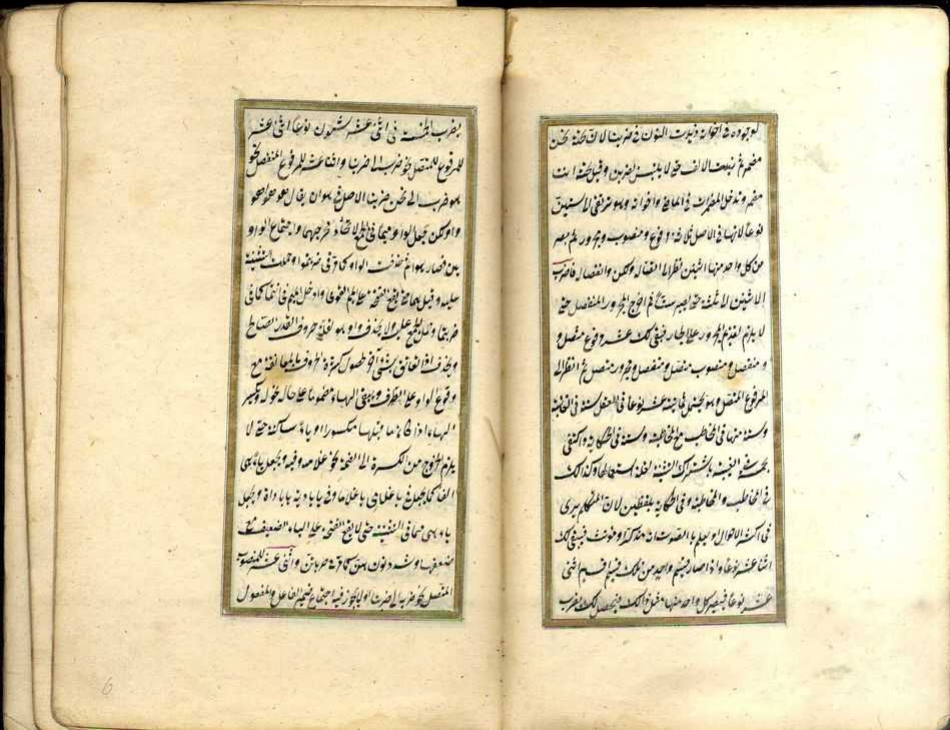 لوجوده في اخواته وزيدت النون في ضربنا لان تحته نحن
مضمر ثم زيدت الالف حتى لا يلتبس بضربن وقيل تحته اننا
مضمر وتدخل المضمرات في الماضى واخواته وهو ترتقى الى ستين
نوعا لانها في الاصل ثلاثة مرفوع ومنصوب ومجرور ثم يصير
من كل واحد منها اثنين نظرا الى اتصاله وانفصاله فاضرب
الاثنين الثلثة حتى يصير ستا ثم اخرج المجرور المنفصل حتى
لا يلزم تقديم المجرور على الجار فبقى لك مرفوع متصل و
ومنفصل ومنصوب متصل ومنفصل ومجرور متصل ثم انظر الى
المرفوع المتصل وهو يحتمل ثمانية عشر نوعا في العقل ستة في الغائبة
وستة منها في المخاطب مع المخاطبة وستة في الحكاية واكتفى
بخمسة في الغيبة باشتراك التثنية لقلة استعمالها وكذالك
في المخاطب والمخاطبة وفى الحكاية بلفظين لان المتكلم يرى
في اكثر الاحوال ويعلم بالصوت انه مذكر او مؤنث فبقى لك
اثنا عشر نوعا واذا صار قسم واحد من تلك قسم اثنى
عشر نوعا فيصير كل واحد منها مثل ذالك فيحصل لك بضرب
بضرب الخمسة في اثنى عشر ستون نوعا اثنى عشر
للمرفوع المتصل نحو ضرب الى ضربنا واثنا عشر للمرفوع المنفصل نحو
هو ضرب الى نحن ضربنا الاصل في هو ان يقال هو هوا هوو
ولكن جعل الواو ميما في الجمع لاتحاد مخرجهما واجتماع الواو
ين فصار هموا ثم حذفت الواو كما مر في ضربتموا وحملت التثنية
عليه وقيل
ضربتما وحمل الجمع عليه ولا يحذف واو هو لقلة حروفه من القدر الصالح
ويحذف اذا تعانق بشئ آخر لحصول كثرة الحروف بالمعانقة مع
وقوع الواو على الطرف ويبقى الهاء مضموما على حاله نحو له وتكسر
الهاء اذا كان ما قبلها مكسورا او ياء ساكنة حتى لا
يلزم الخروج من الكسرة الى الضمة نحو غلامه وفيه ويجعل ياء هى
الفا كما يجعل في يا غلامى يا غلاما وفى يا بادية يا باداة ويجعل
ياء هى ميما في التثنية حتى لا يقع الفتحة على الياء الضعيف مع
ضعفها وشدد نون هن كما مر في ضربتن واثنى عشر للمنصوب
المتصل نحو ضربه الى ضربنا ولا يجوز فيه اجتماع ضميرى الفاعل والمفعول
6